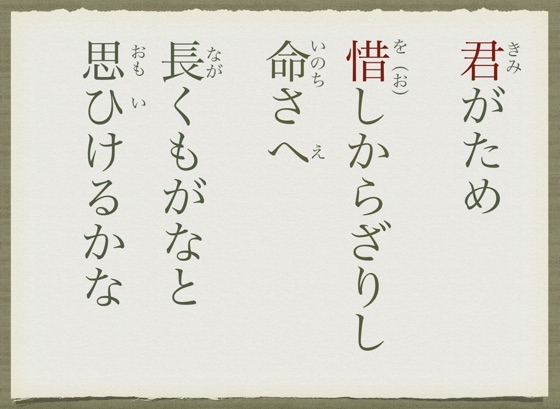 君がため
惜しからざりし
命さへ
長くもがなと
思ひけるかな
きみ
を（お）
いのち
え
なが
おも
い